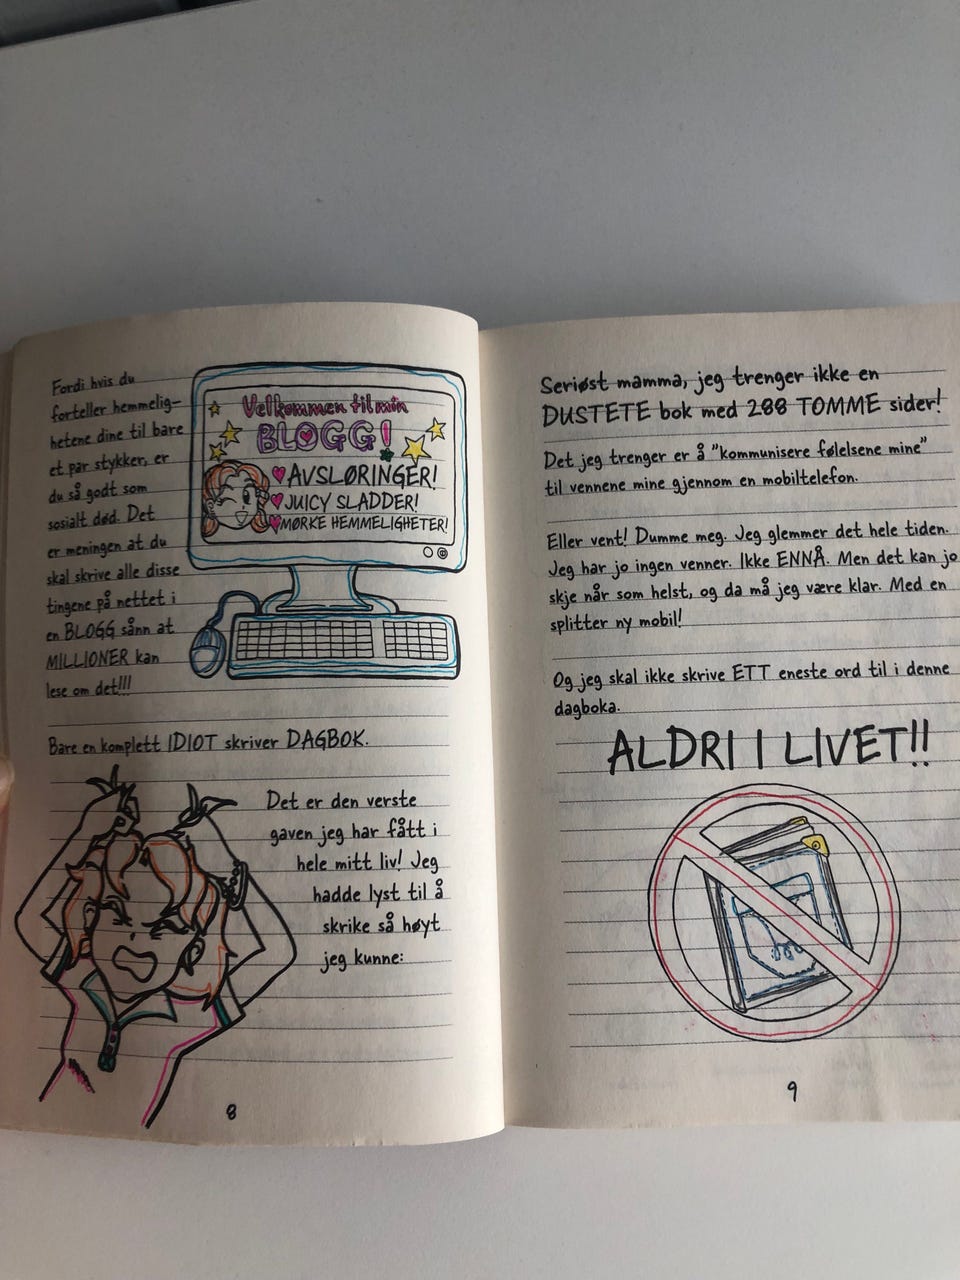 Fordi hvis du
forteller hemmelig-
hetene dine til bare
et par stykker, er
du så godt som
sosialt død. Det
er meningen at du
skal skrive alle disse
tingene på nettet i
en BLOGG sånn at
MILLIONER kan
lese om det!!!
Velkommen til min
BLOGG!
AVSLØRINGER!
JUICY SLADDER!
MØRKE HEMMELIGHETER!
Bare en komplett IDIOT skriver DAGBOK.
Det er den verste
gaven jeg har fått i
hele mitt liv! Jeg
hadde lyst til å
skrike så høyt
jeg kunne:
8
Seriøst mamma, jeg trenger ikke en
DUSTETE bok med 288 TOMME sider!
Det jeg trenger er å "kommunisere følelsene mine"
til vennene mine gjennom en mobiltelefon.
Eller vent! Dumme meg. Jeg glemmer det hele tiden.
Jeg har jo ingen venner. Ikke ENNÅ. Men det kan jo
skje når som helst, og da må jeg være klar. Med en
splitter ny mobil!
Og jeg skal ikke skrive ETT eneste ord til i denne
dagboka.
ALDRI I LIVET!!
9